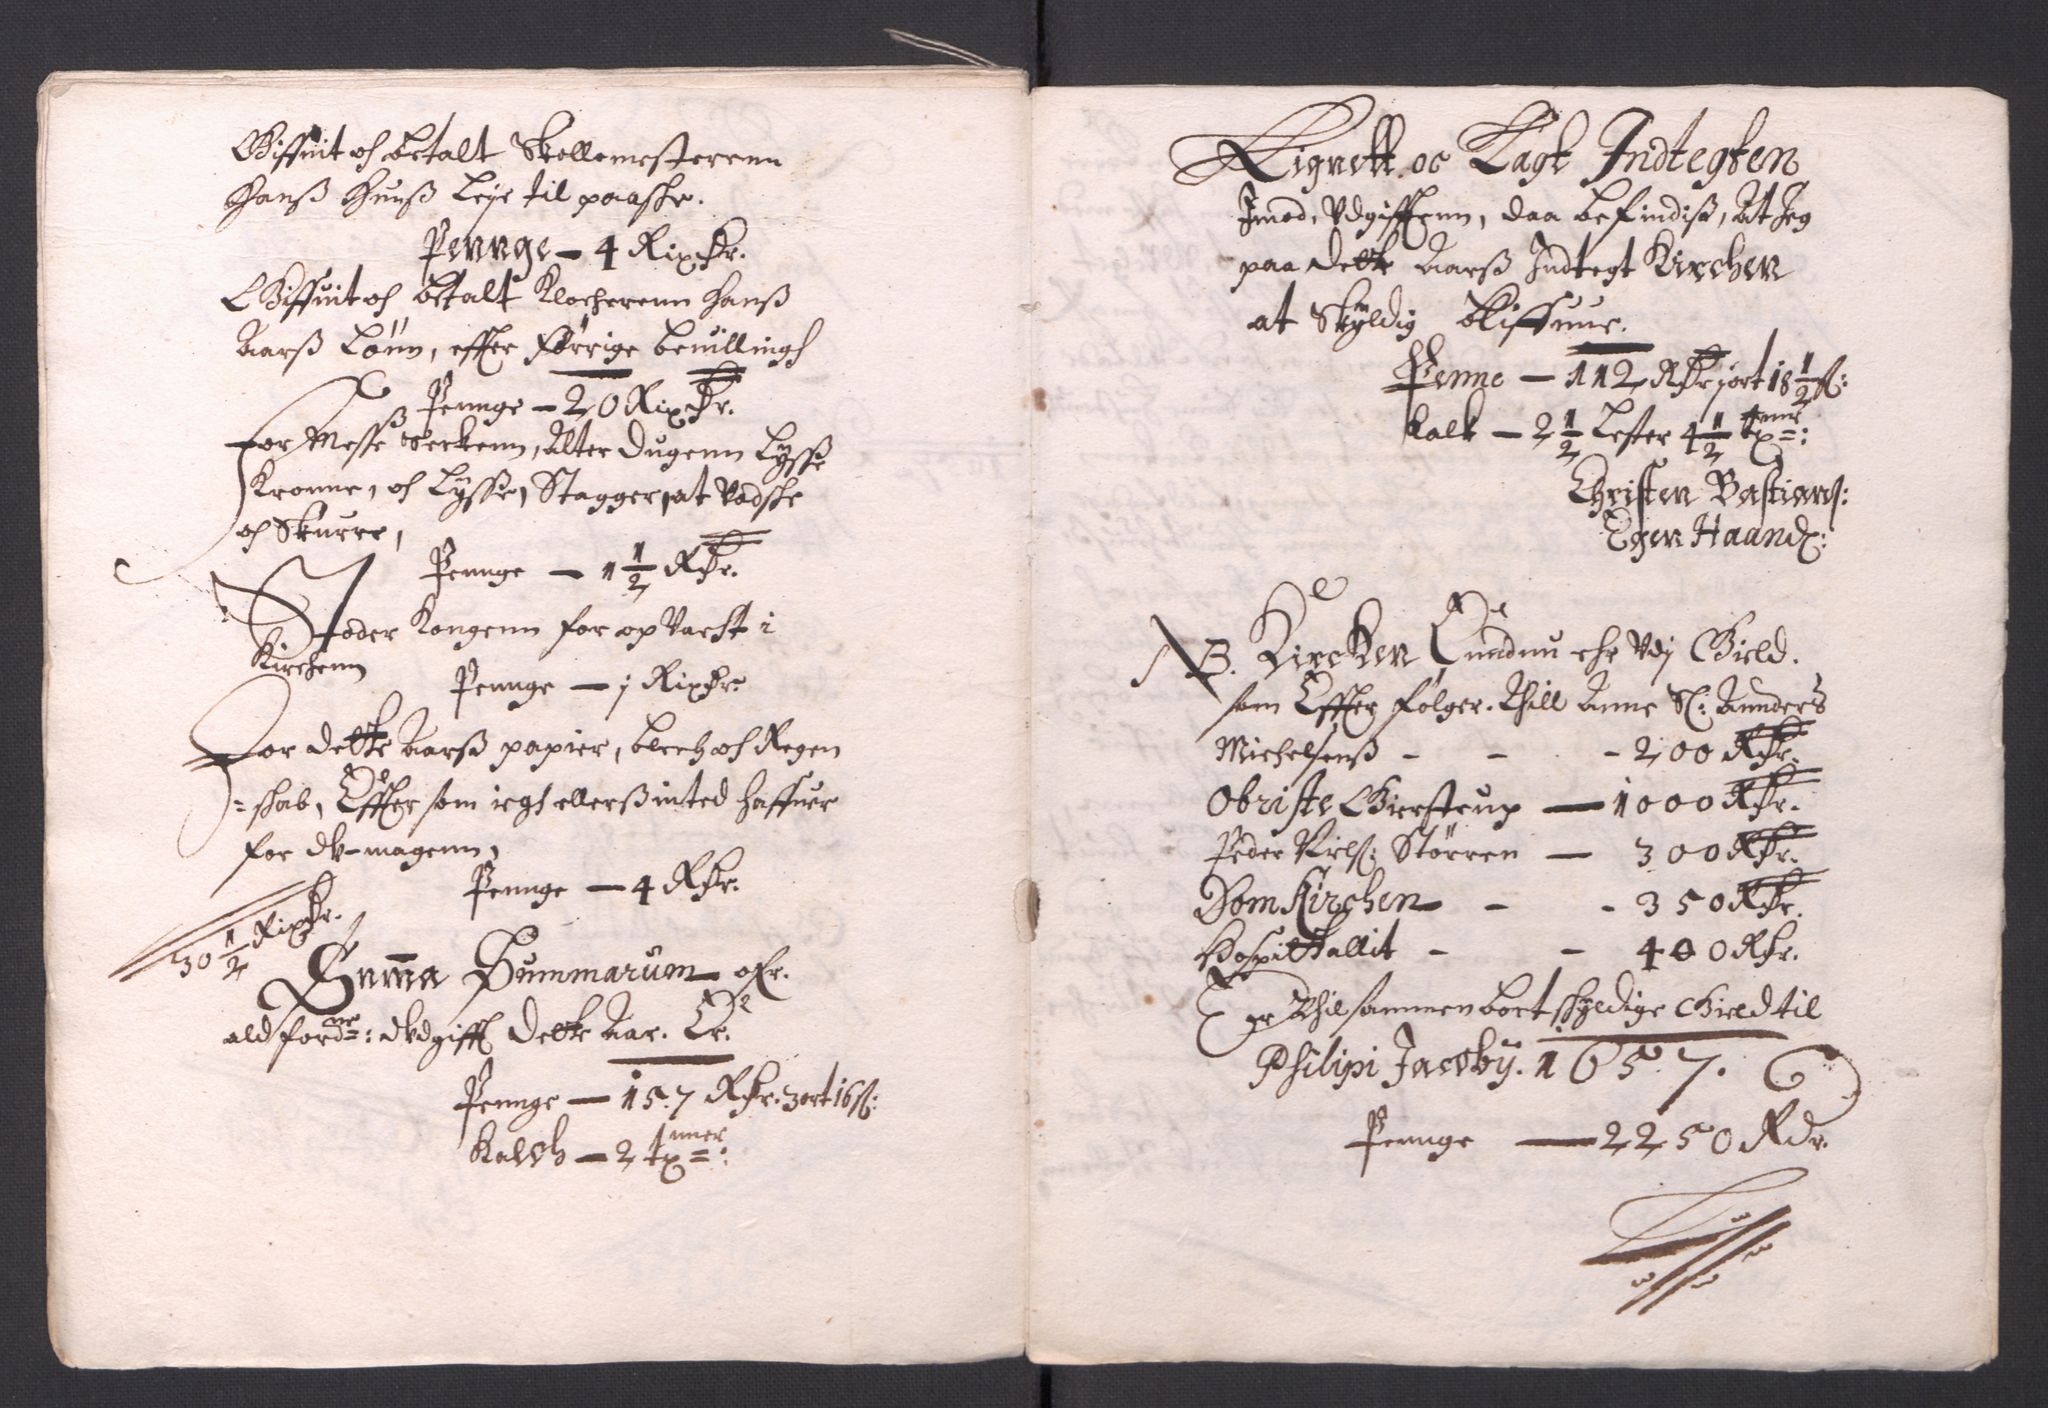 Giffuit och betalt Skollemesterenn
Hanß Huuß Leje til paaske.
Pennge – 4 Rixdr.
Giffuit och betalt Klocherenn Hanß
Aarß Lönn, effter forrige beuillingh
Pennge – 20 Rixdr.
For Messe Serkenn, Alter Dugenn Lysse
Kronne, och Lysse, Stagger, at Vadske
och Skurre,
Pennge – 1 1/2 Rdr.
Moder Kongenn for op Vacht i
Kirchenn
Pennge – j Rixdr.
For dette Aarß papier, blech och Regen
=skab, Effter som iegh ellerß inted haffuer
for Vmagenn,
Pennge – 4 Rdr.
30 1/2 Rixdr.
Suma Summarum ofr.
ald fordne: Vdgifft Dette Aar. Er.
Pennge – 157 Rdr. 3 ort 16 ß:
Kalch – 2 tnner:
Lignett oc Lagt Indtegten
Imod, Vdgifftenn, daa befindiß, At Jeg
paa dette Aarß Indtegt Kirchen
at Skyldig bliffuue.
Penne – 112 Rdr j ort 18 1/2 ß:
Kalk – 2 1/2 Lester 4 1/2 tnnr:
Christen Bastians:
Egen Haand:
NB. Kircken Er Vdj Gield.
som Effter følger. Thill Anne Sl: Anders
Michelsenß - - - 200 Rdr.
Obriste Gierstrup — 1000 Rdr.
Peder Nels: Störren — 300 Rdr.
Dom Kirchen - - 350 Rdr.
Hospitallit - - 400 Rdr.
Er Thilsammen bort skyldige Gield til
Philipi Jacoby. 1657.
Pennge — 2250 Rdr.